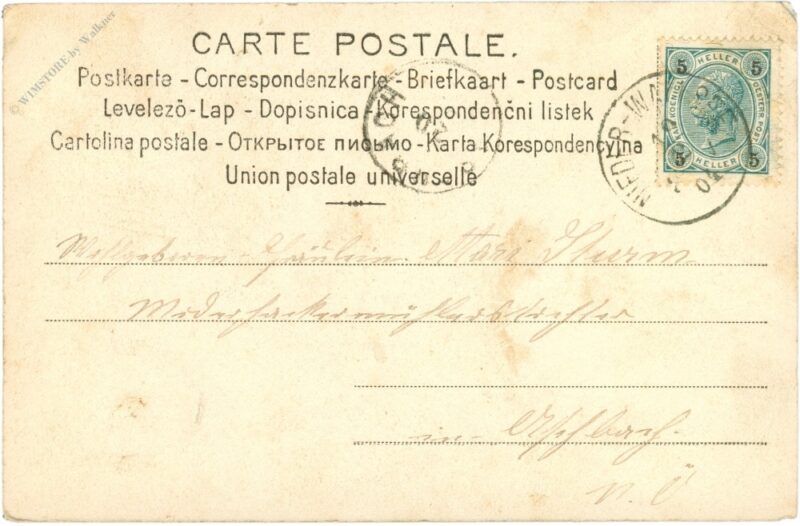 © WIMSTORE by Walkner
CARTE POSTALE.
Postkarte - Correspondenzkarte - Briefkaart - Postcard
Levelező-Lap - Dopisnica - Korespondenčni listek
Cartolina postale - Открытое письмо - Karta Korespondencyjna
Union postale universelle
5 HELLER 5
5 5
NIEDER-WA
Wohlgeboren Fräulein Mari Sturm
in Aschbach
N. Ö